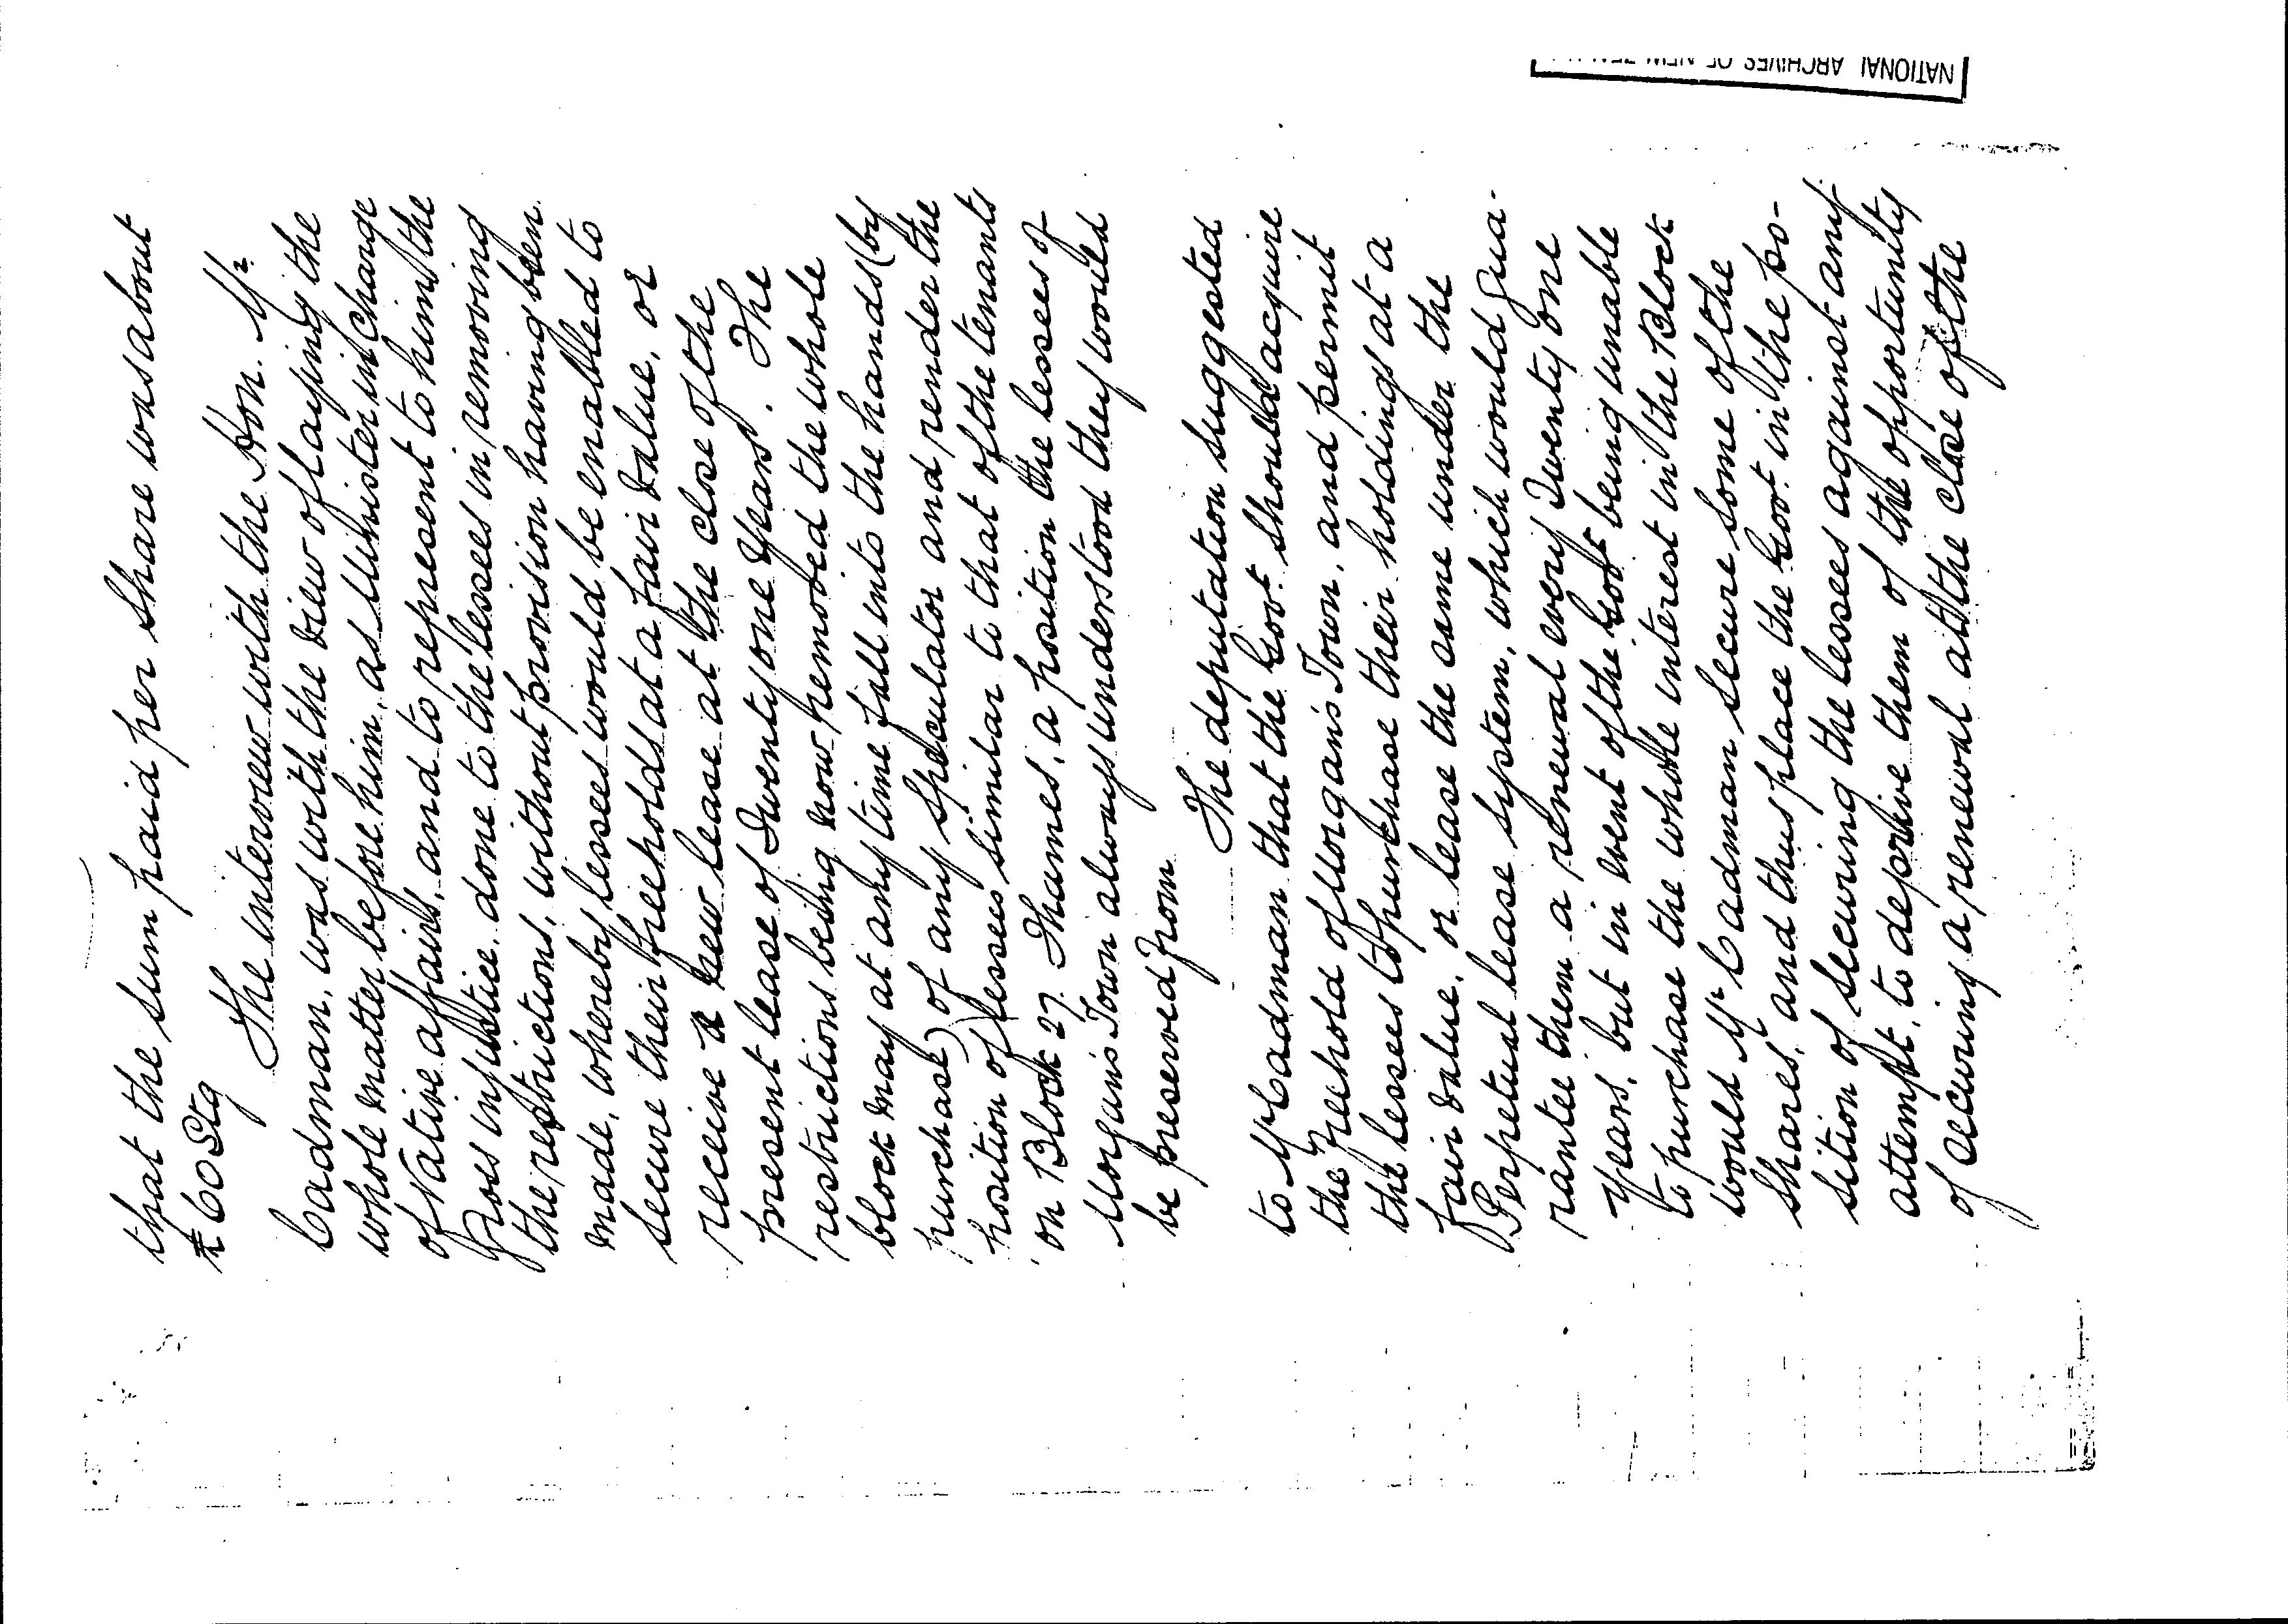 NATIONAL ARCHIVES OF NEW
that the sum paid per share was about
£60 Stg
The interview with the Hon. Mr.
Cadman, was with the view of laying the
whole matter before him, as Minister in charge
of Native affairs, and to represent to him the
gross injustice, done to the lessees in removing
the restrictions, without provision having been
made, whereby lessees would be enabled to
secure their freeholds at a fair value, or
receive a new lease at the close of the
present lease of Twenty one Years. The
restrictions being now removed the whole
block may at any time fall into the hands (by
purchase) of any speculator and render the
position of lessees similar to that of the tenants
on Block 27. Thames, a position the lessees of
Morgan's Town always understood they would
be preserved from
The deputation suggested
to Mr Cadman that the Govt. should acquire
the freehold of Morgan's Town, and permit
the lessees to purchase their holdings at a
fair value, or lease the same under the
Perpetual lease system, which would gua-
rantee them a renewal every Twenty one
Years, but in event of the Govt being unable
to purchase the whole interest in the Block
would Mr Cadman secure some of the
shares, and thus place the Govt. in the po-
sition of securing the lessees against any
attempt, to deprive them of the opportunity
of securing a renewal at the close of the